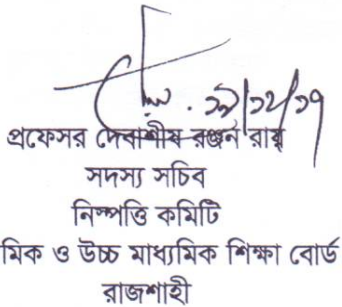 ১৯/১২/১৭
প্রফেসর দেবাশীষ রঞ্জন রায়
সদস্য সচিব
নিষ্পত্তি কমিটি
মিক ও উচ্চ মাধ্যমিক শিক্ষা বোর্ড
রাজশাহী